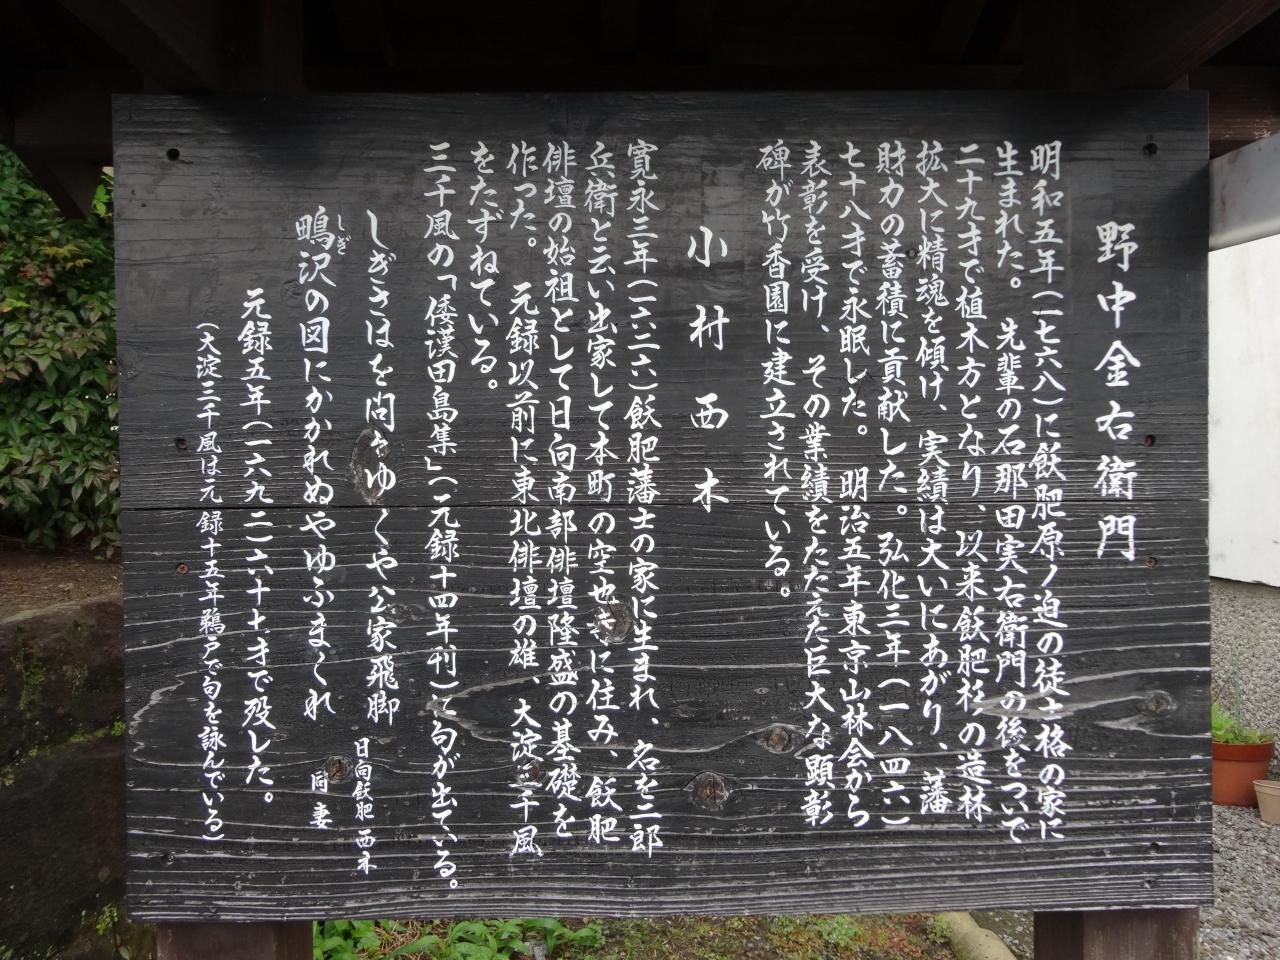 野中金右衛門
明和五年(一七六八)に飫肥原ノ迫の徒士格の家に
生まれた。先輩の石那田実右衛門の後をついで
二十九才で植木方となり、以来飫肥杉の造林
拡大に精魂を傾け、実績は大いにあがり、藩
財力の蓄積に貢献した。弘化三年(一八四六)
七十八才で永眠した。明治五年東京山林会から
表彰を受け、その業績をたたえた巨大な顕彰
碑が竹香園に建立されている。
小村西木
寛永三年(一六二六)飫肥藩士の家に生まれ、名を二郎
兵衛と云い出家して本町の空也寺に住み、飫肥
俳壇の始祖として日向南部俳壇隆盛の基礎を
作った。元録以前に東北俳壇の雄、大淀三千風
をたずねている。
三千風の「倭漢田鳥集」(元録十四年刊)に句が出ている。
しぎさはを問はゆくや公家飛脚 日向飫肥 西木
鴫沢の図にかかれぬやゆふまくれ 同妻
しぎ
元録五年(一六九二)六十七才で殁した。
(大淀三千風は元録十五年鵜戸で句を詠んでいる)